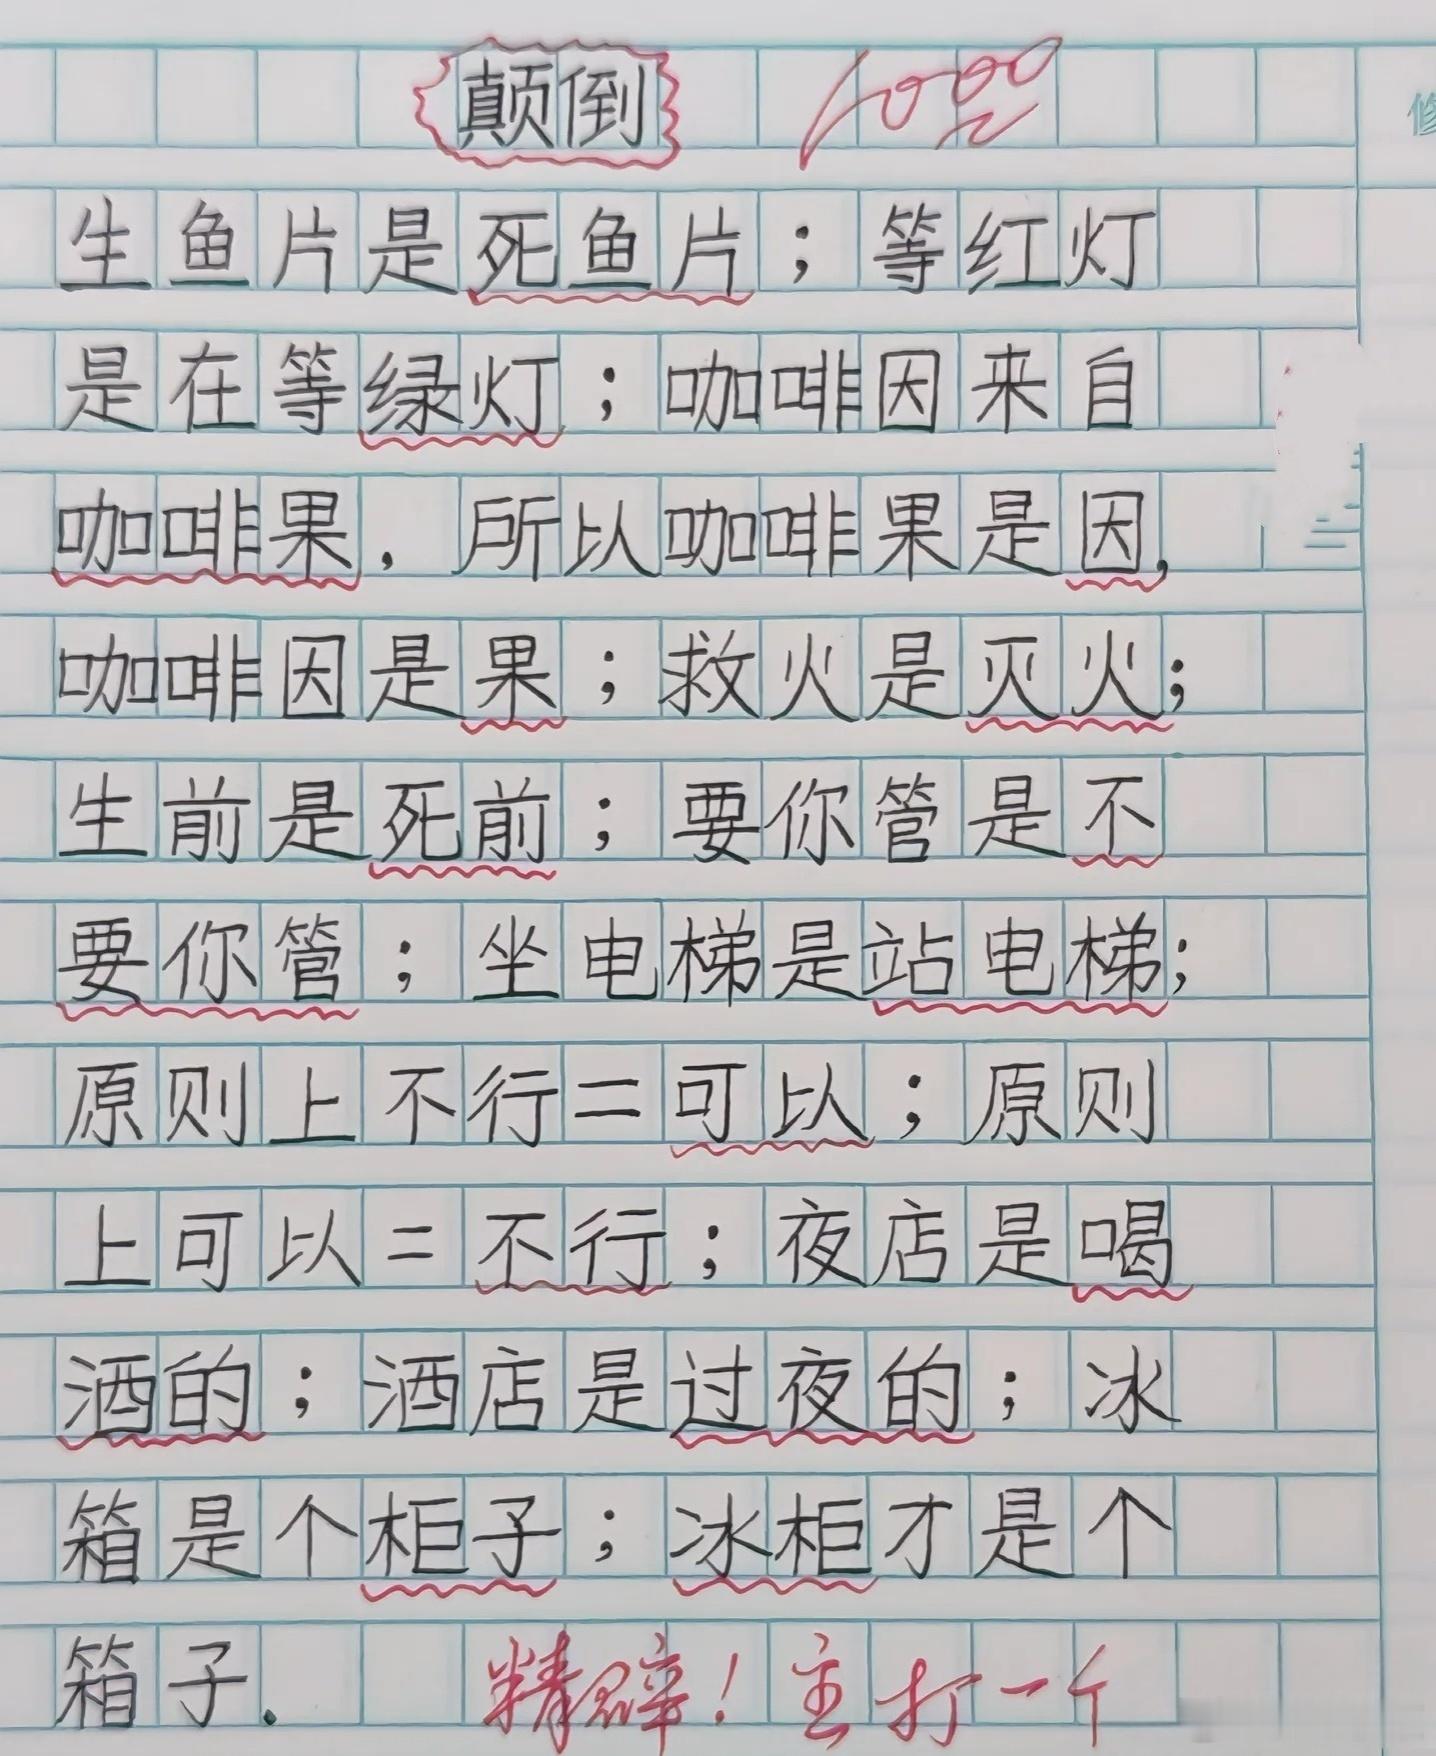 颠倒 1000
生鱼片是死鱼片；等红灯
是在等绿灯；咖啡因来自
咖啡果，所以咖啡果是因，
咖啡因是果；救火是灭火；
生前是死前；要你管是不
要你管；坐电梯是站电梯；
原则上不行=可以；原则
上可以=不行；夜店是喝
酒的；酒店是过夜的；冰
箱是个柜子；冰柜才是个
箱子．精辟！主打一个
修